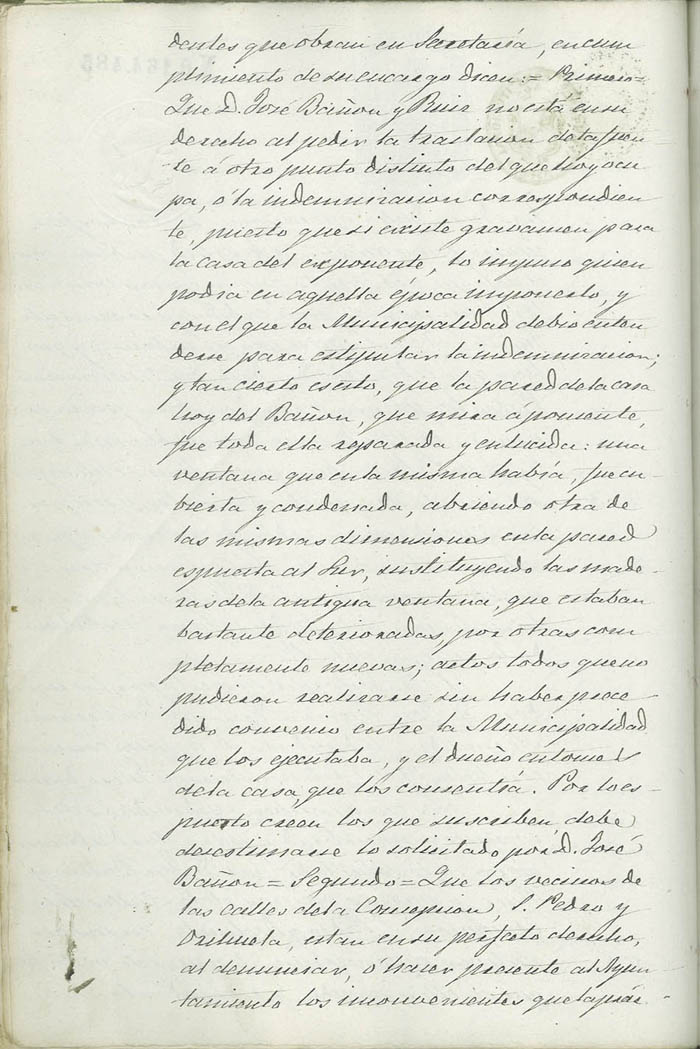 dentes que obran en Secretaría, en cum
plimiento de su encargo dicen: = Primero=
Que D. José Bañon y Ruiz no está en su
derecho al pedir la traslacion de la fuen
te á otro punto distinto del que hoy ocu
pa, ó la indemnizacion correspondien
te, puesto que si existe gravamen para
la casa del exponente, lo impuso quien
podia en aquella época imponerlo, y
con el que la Municipalidad debio enten
derse para estipular la indemnizacion;
y tan cierto es esto, que la pared de la casa
hoy del Bañon, que mira á poniente,
fue toda ella reparada y enlucida: una
ventana que en la misma había, fue cu
bierta y condenada, abriendo otra de
las mismas dimensiones en la pared
espuesta al Sur, sustituyendo las made-
ras de la antigua ventana, que estaban
bastante deterioradas, por otras com
pletamente nuevas; actos todos que no
pudieron realizarse sin haber prece-
dido convenio entre la Municipalidad
que los ejecutaba, y el dueño entonces
de la casa que los consentía. Por lo es-
puesto creen los que suscriben debe
desestimarse lo solicitado por D. José
Bañon = Segundo = Que los vecinos de
las calles de la Concepcion, S. Pedro y
Orihuela, estan en su perfecto derecho,
al denunciar, ó hacer presente al Ayun-
tamiento los inconvenientes que la